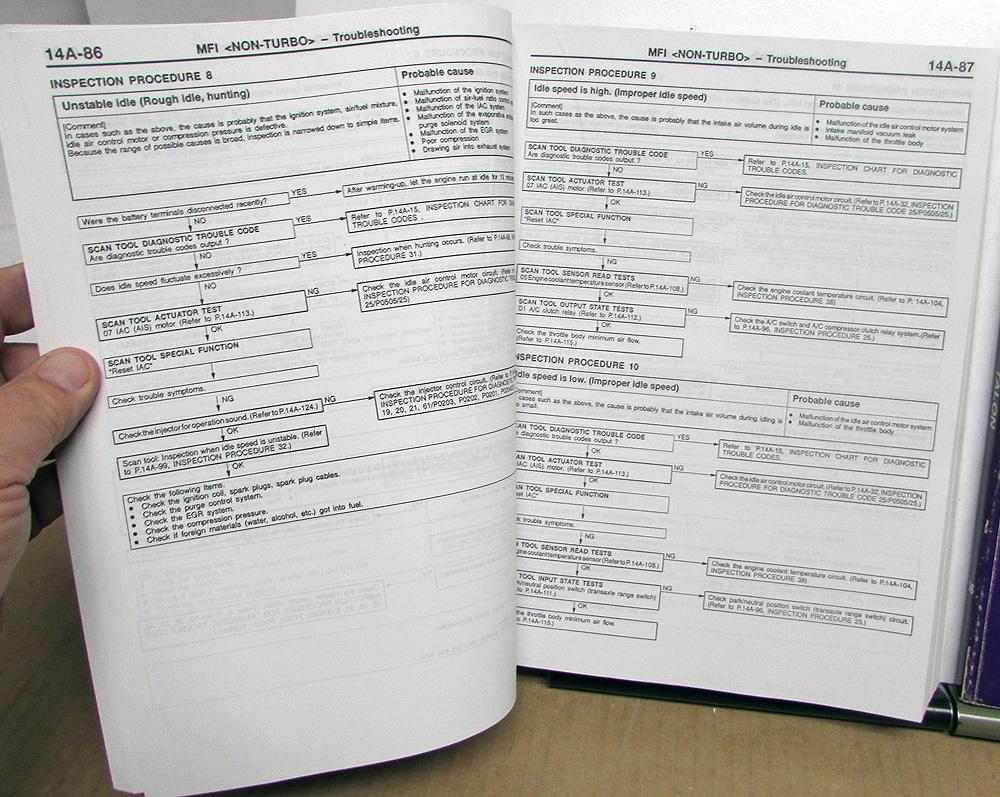 14A-86
MFI <NON-TURBO> – Troubleshooting
INSPECTION PROCEDURE 8
Unstable idle (Rough idle, hunting)
[Comment]
In cases such as the above, the cause is probably that the ignition system, air/fuel mixture,
idle air control motor or compression pressure is defective.
Because the range of possible causes is broad, inspection is narrowed down to simple items.
Probable cause
• Malfunction of the ignition system
• Malfunction of air-fuel ratio control
• Malfunction of the IAC system
• Malfunction of the evaporative
purge solenoid system
• Malfunction of the EGR system
• Poor compression
• Drawing air into exhaust system
Were the battery terminals disconnected recently?
YES
After warming-up, let the engine run at idle for 10
NO
SCAN TOOL DIAGNOSTIC TROUBLE CODE
Are diagnostic trouble codes output ?
YES
Refer to P.14A-15, INSPECTION CHART FOR
TROUBLE CODES.
NO
Does idle speed fluctuate excessively ?
YES
Inspection when hunting occurs. (Refer to
PROCEDURE 31.)
NO
SCAN TOOL ACTUATOR TEST
07 IAC (AIS) motor (Refer to P.14A-113.)
NG
Check the idle air control motor circuit.
INSPECTION PROCEDURE FOR DIAGNOSTIC
25/P0505/25)
OK
SCAN TOOL SPECIAL FUNCTION
"Reset IAC"
Check trouble symptoms.
NG
Check the injector for operation sound. (Refer to P.14A-124.)
NG
Check the injector control circuit. (Refer to
INSPECTION PROCEDURE FOR DIAGNOSTIC
19, 20, 21, 61/P0203, P0202, P0201,
OK
Scan tool: Inspection when idle speed is unstable. (Refer
to P.14A-99, INSPECTION PROCEDURE 32.)
OK
Check the following items.
• Check the ignition coil, spark plugs, spark plug cables.
• Check the purge control system.
• Check the EGR system.
• Check the compression pressure.
• Check if foreign materials (water, alcohol, etc.) got into fuel.
MFI <NON-TURBO> – Troubleshooting
14A-87
INSPECTION PROCEDURE 9
Idle speed is high. (Improper idle speed)
[Comment]
In such cases as the above, the cause is probably that the intake air volume during idle is
too great.
Probable cause
• Malfunction of the idle air control motor system
• Intake manifold vacuum leak
• Malfunction of the throttle body
SCAN TOOL DIAGNOSTIC TROUBLE CODE
Are diagnostic trouble codes output ?
YES
Refer to P.14A-15, INSPECTION CHART FOR DIAGNOSTIC
TROUBLE CODES.
NO
SCAN TOOL ACTUATOR TEST
07 IAC (AIS) motor. (Refer to P.14A-113.)
NG
Check the idle air control motor circuit. (Refer to P.14A-32, INSPECTION
PROCEDURE FOR DIAGNOSTIC TROUBLE CODE 25/P0505/25.)
OK
SCAN TOOL SPECIAL FUNCTION
"Reset IAC"
Check trouble symptoms.
NG
SCAN TOOL SENSOR READ TESTS
05 Engine coolant temperature sensor (Refer to P.14A-108.)
NG
Check the engine coolant temperature circuit. (Refer to P.14A-104,
INSPECTION PROCEDURE 38)
OK
SCAN TOOL OUTPUT STATE TESTS
01 A/C clutch relay (Refer to P.14A-112.)
NG
Check the A/C switch and A/C compressor clutch relay system. (Refer
to P.14A-96, INSPECTION PROCEDURE 26.)
OK
Check the throttle body minimum air flow.
(Refer to P.14A-115.)
NSPECTION PROCEDURE 10
Idle speed is low. (Improper idle speed)
Comment]
cases such as the above, the cause is probably that the intake air volume during idling is
o small.
Probable cause
• Malfunction of the idle air control motor system
• Malfunction of the throttle body
AN TOOL DIAGNOSTIC TROUBLE CODE
e diagnostic trouble codes output ?
YES
Refer to P.14A-15, INSPECTION CHART FOR DIAGNOSTIC
TROUBLE CODES.
NO
AN TOOL ACTUATOR TEST
IAC (AIS) motor. (Refer to P.14A-113.)
NG
Check the idle air control motor circuit. (Refer to P.14A-32, INSPECTION
PROCEDURE FOR DIAGNOSTIC TROUBLE CODE 25/P0505/25.)
OK
AN TOOL SPECIAL FUNCTION
eset IAC"
k trouble symptoms.
NG
N TOOL SENSOR READ TESTS
gine coolant temperature sensor (Refer to P.14A-108.)
NG
Check the engine coolant temperature circuit. (Refer to P.14A-104,
INSPECTION PROCEDURE 38)
OK
TOOL INPUT STATE TESTS
k/neutral position switch (transaxle range switch)
P.14A-111.)
NG
Check park/neutral position switch (transaxle range switch) circuit.
(Refer to P.14A-96, INSPECTION PROCEDURE 25.)
OK
the throttle body minimum air flow.
P.14A-115.)